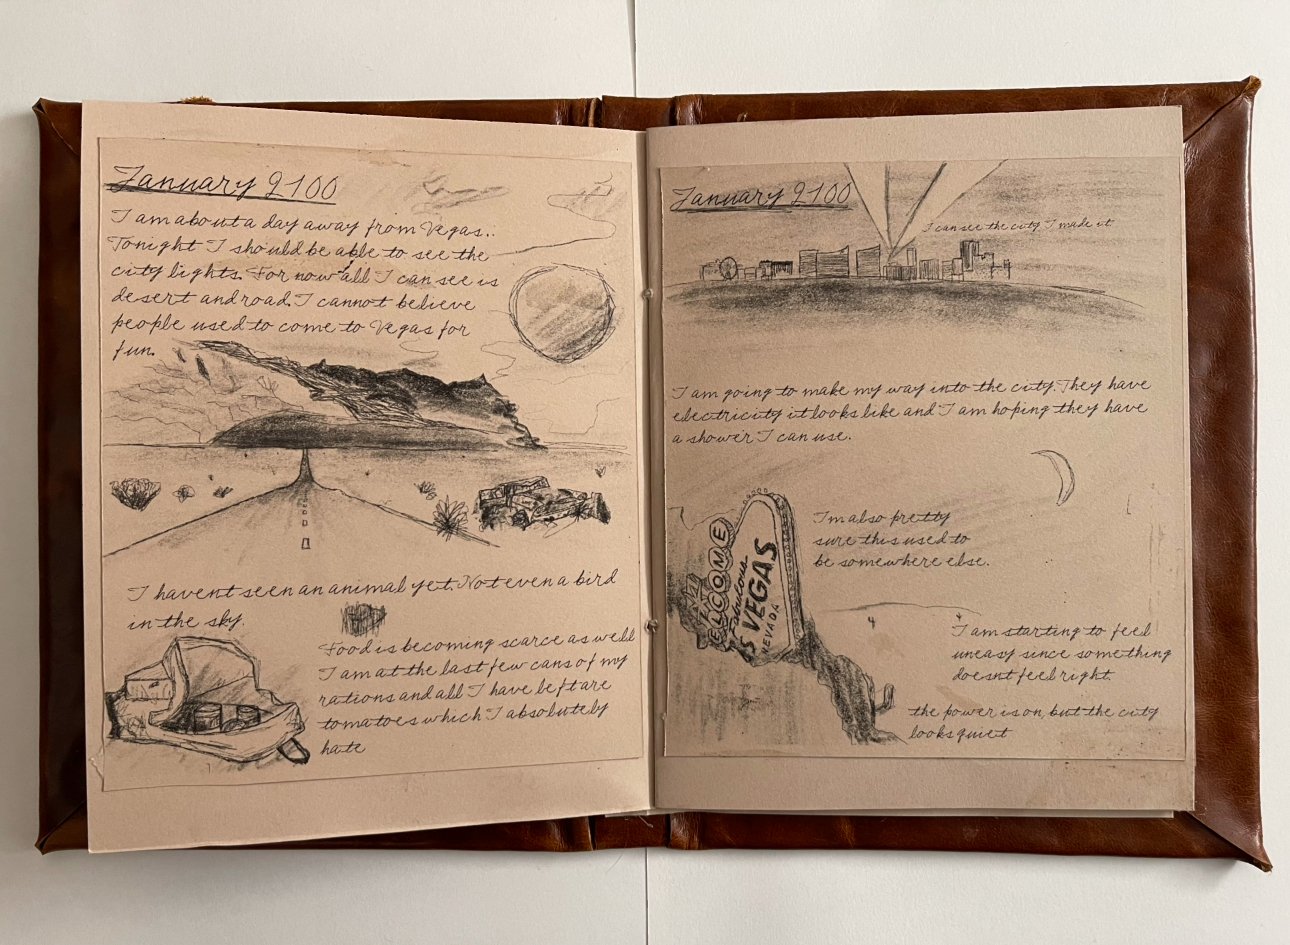 January 2100
I am about a day away from Vegas.
Tonight I should be able to see the
city lights. For now all I can see is
desert and road. I cannot believe
people used to come to Vegas for
fun.
I havent seen an animal yet. Not even a bird
in the sky.
Food is becoming scarce as well
I am at the last few cans of my
rations and all I have left are
tomatoes which I absolutely
hate
January 2100
I can see the city I made it
I am going to make my way into the city. They have
electricity it looks like and I am hoping they have
a shower I can use.
I'm also pretty
sure this used to
be somewhere else.
ELCOME
Fabulous
S VEGAS
NEVADA
I am starting to feel
uneasy since something
doesnt feel right.
the power is on, but the city
looks quiet